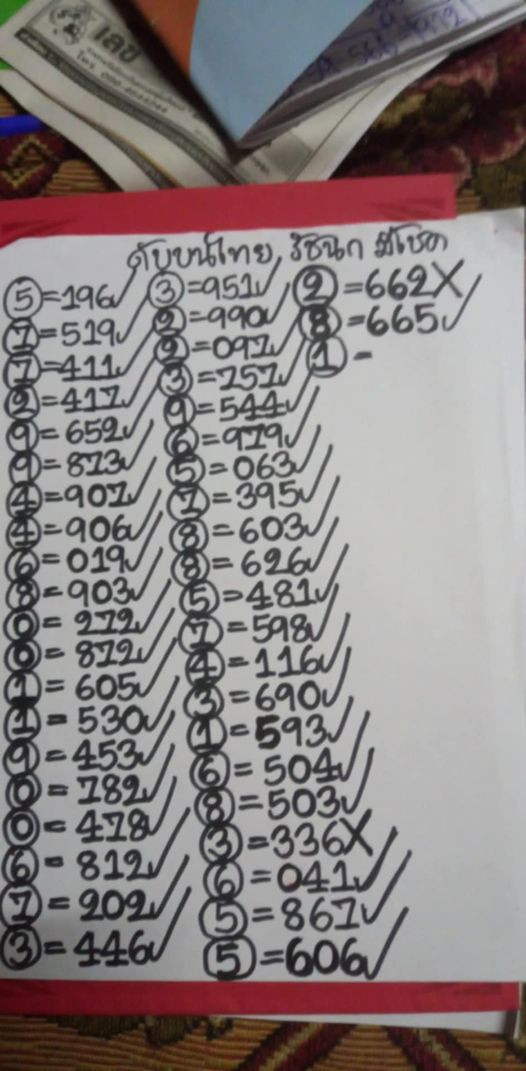 เลข
ดับบนไทย, รัชนก มีโชค
⑤=196✓
⑦=519✓
⑦=411✓
②=417✓
⑨=652✓
⑨=873✓
④=907✓
④=906✓
⑥=019✓
⑧=903✓
⓪=272✓
⓪=872✓
①=605✓
①=530✓
⑨=453✓
⓪=782✓
⓪=478✓
⑥=812✓
⑦=202✓
③=446✓
③=951✓
②=990✓
②=097✓
③=757✓
⑨=544✓
⑥=979✓
⑤=063✓
⑦=395✓
⑧=603✓
⑧=626✓
⑤=481✓
⑦=598✓
④=116✓
③=690✓
①=593✓
⑥=504✓
⑧=503✓
③=336X
⑥=041✓
⑤=867✓
⑤=606✓
②=662X
⑧=665✓
①=